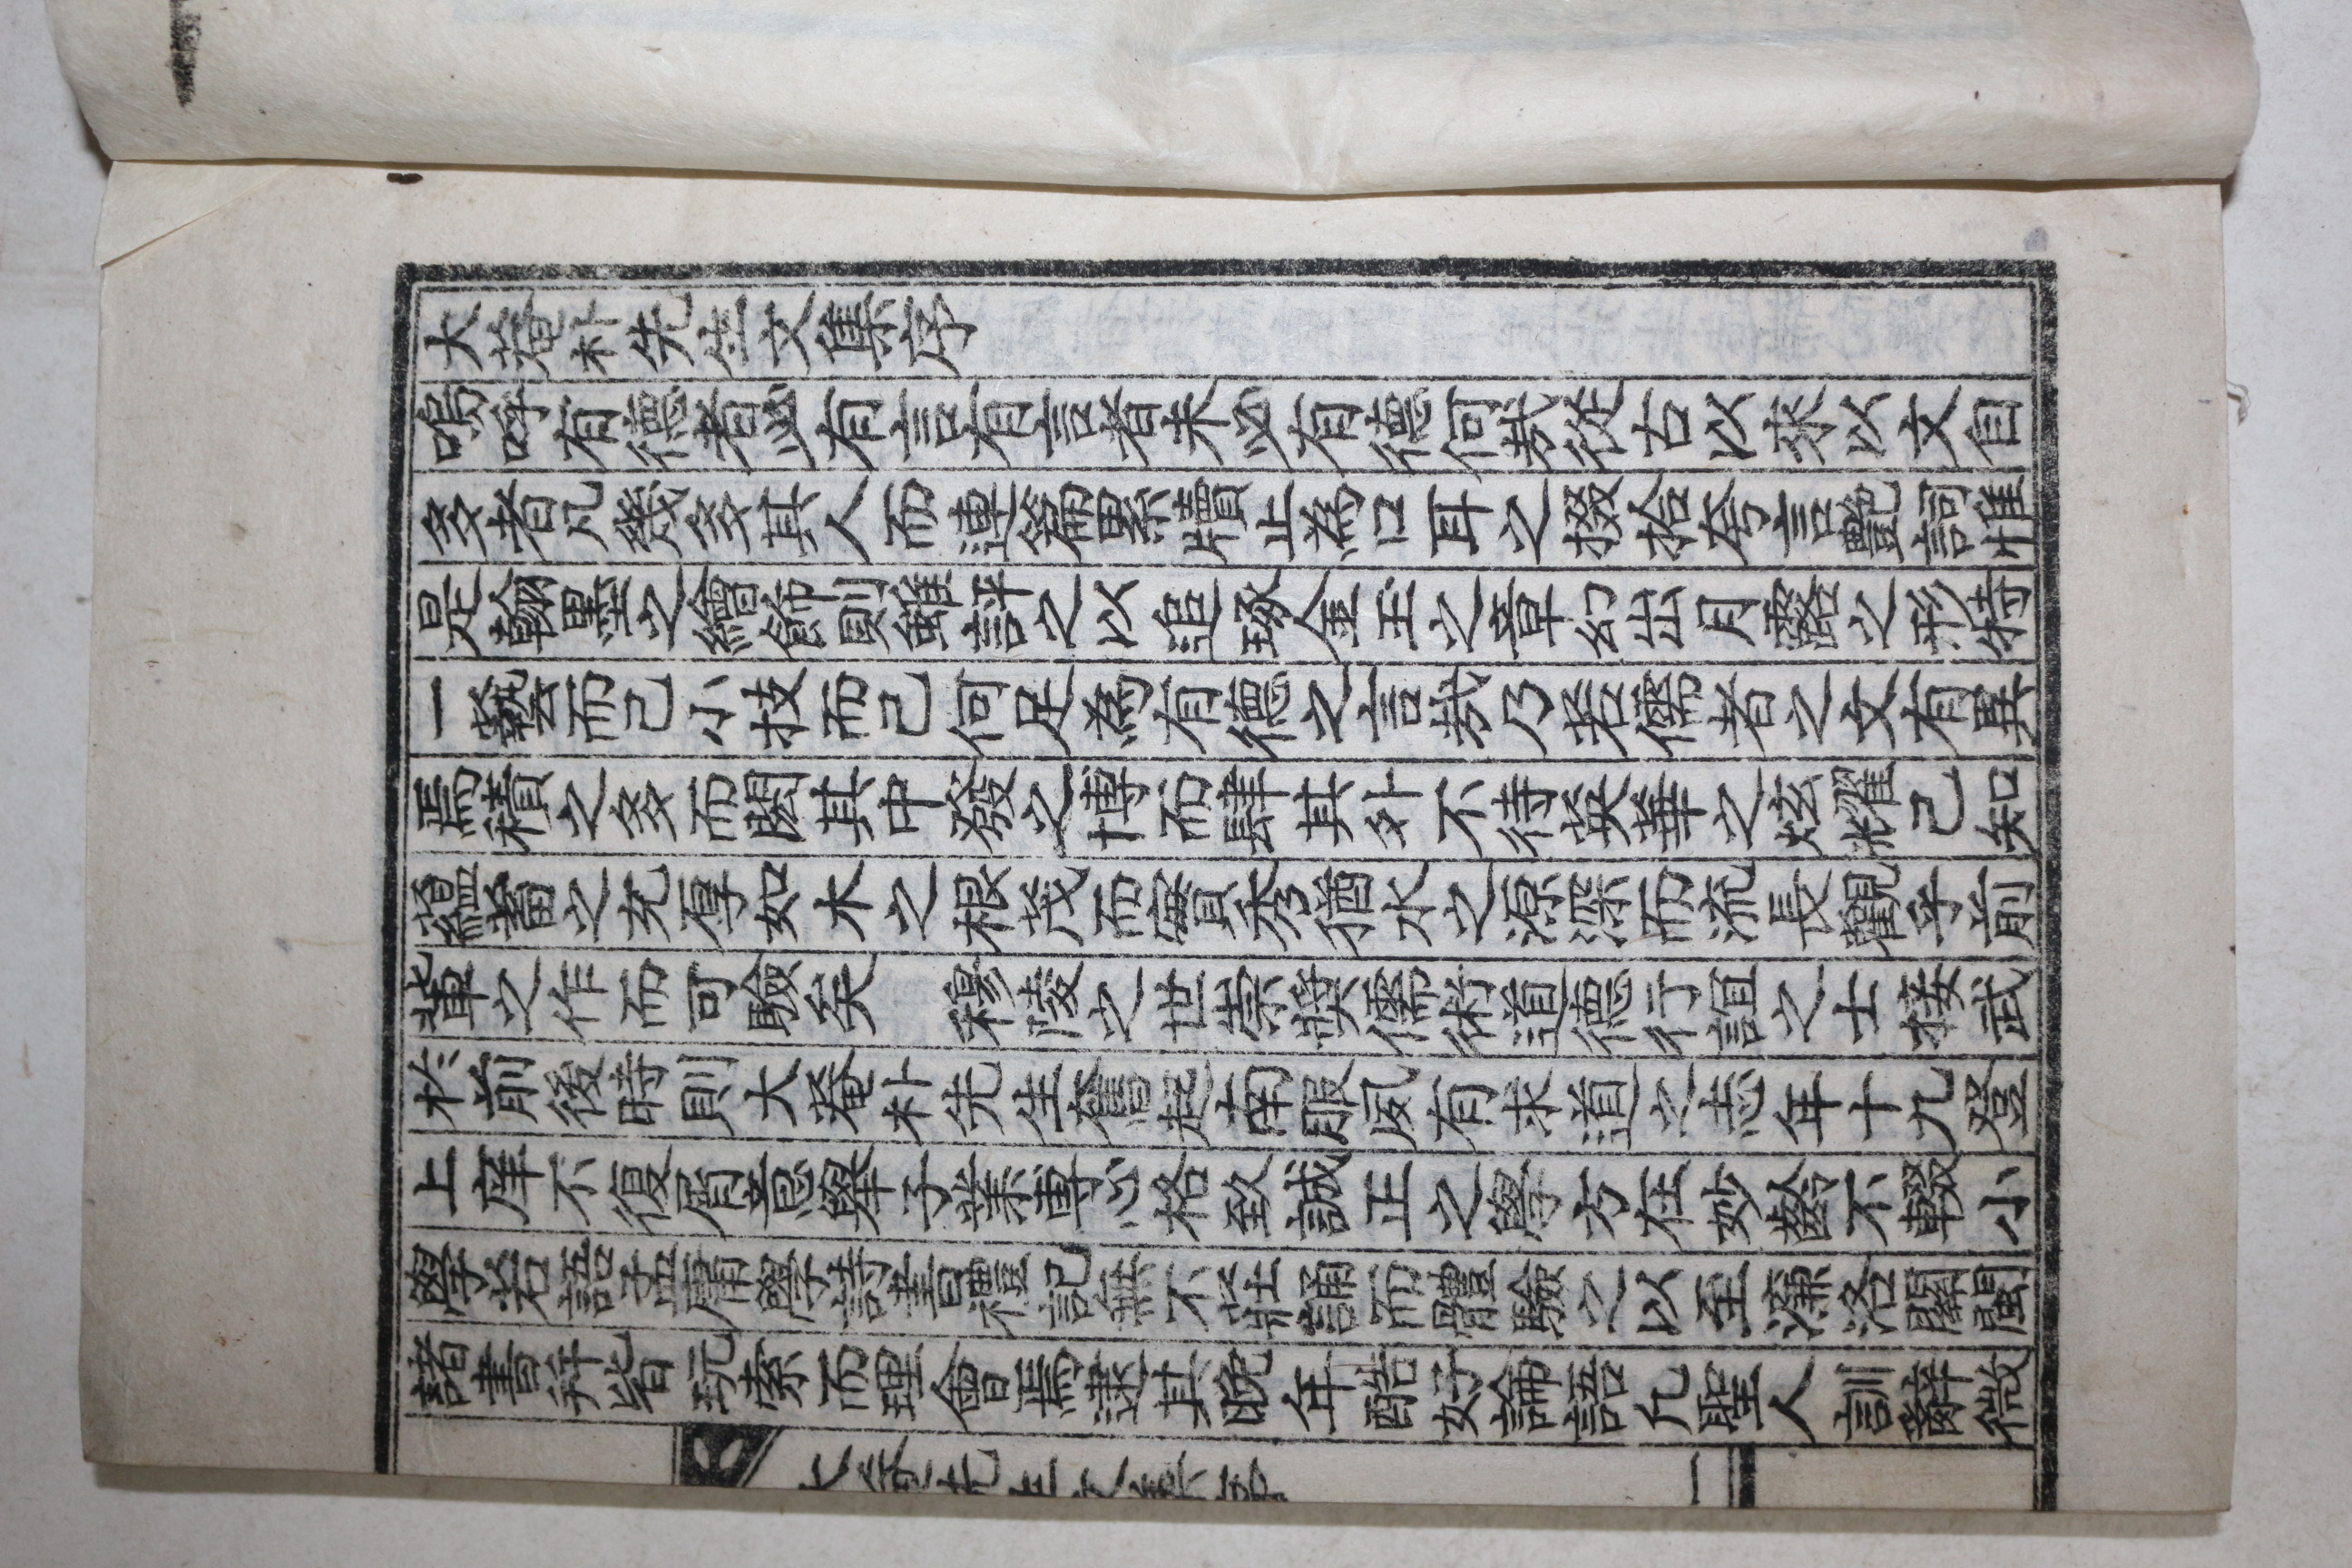 大菴朴先生文集序
嗚呼有德者必有言有言者未必有德何哉從古以來以文自
多者凡幾多其人而連篇累牘止爲口耳之掇拾夸言艶詞惟
是翰墨之繪飾則雖評之以追琢金玉之章幻出月露之形特
一藝而已小技而已何足爲有德之言哉乃若儒者之文有異
焉積之多而閎其中發之博而肆其外不待英華之炫耀已知
蘊蓄之充厚如木之根茂而實秀猶水之源深而流長觀乎前
輩之作而可驗矣　穆陵之世崇奬儒術道德行誼之士接武
於前後時則大菴朴先生奮起南服夙有求道之志年十九登
上庠不復屑意擧子業專心格致誠正之學方在妙齡不輟小
學若語孟庸學詩書禮記無不莊誦而體驗之以至濂洛關閩
諸書幷皆玩索而理會焉逮其晩年酷好論語凡聖人訓辭微
大菴先生文集序　一